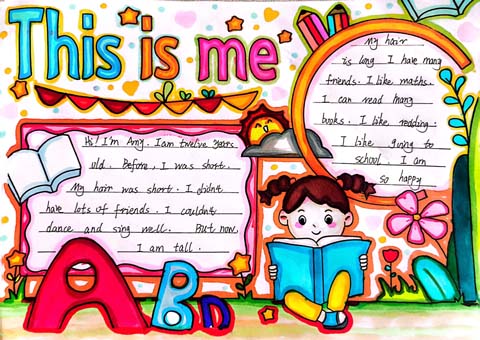 This is me
Hi! I'm Amy. I am twelve years
old. Before, I was short.
My hair was short. I didn't
have lots of friends. I couldn't
dance and sing well. But now,
I am tall.
My hair
is long. I have many
friends. I like maths.
I can read many
books. I like redding.
I like going to
school. I am
so happy
A B n